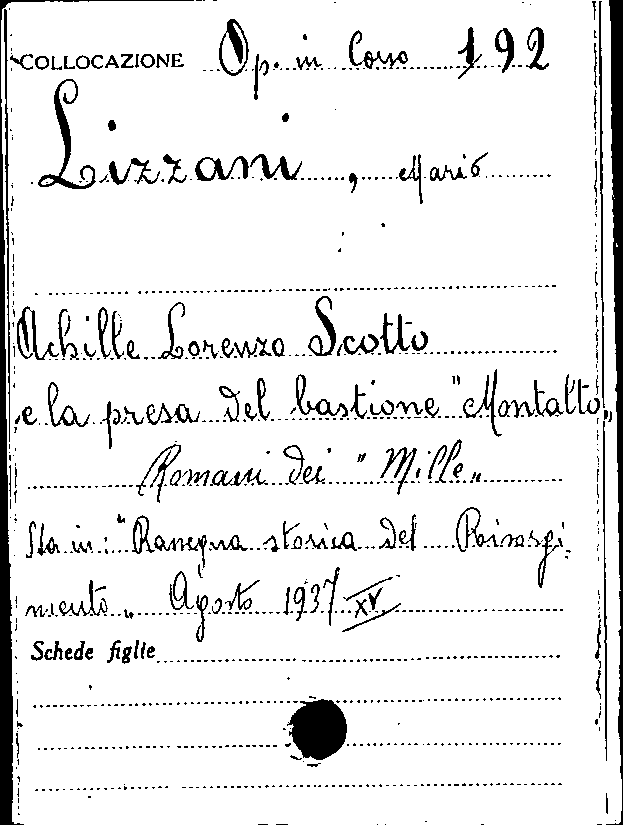 COLLOCAZIONE Op. in Corso 192
Lizzani, Mario
Achille Lorenzo Scotto
e la presa del bastione "Montalto„
Romani dei "Mille„
Sta in: "Rassegna storica del Risorgi-
mento„ Agosto 1937 XV.
Schede figlie